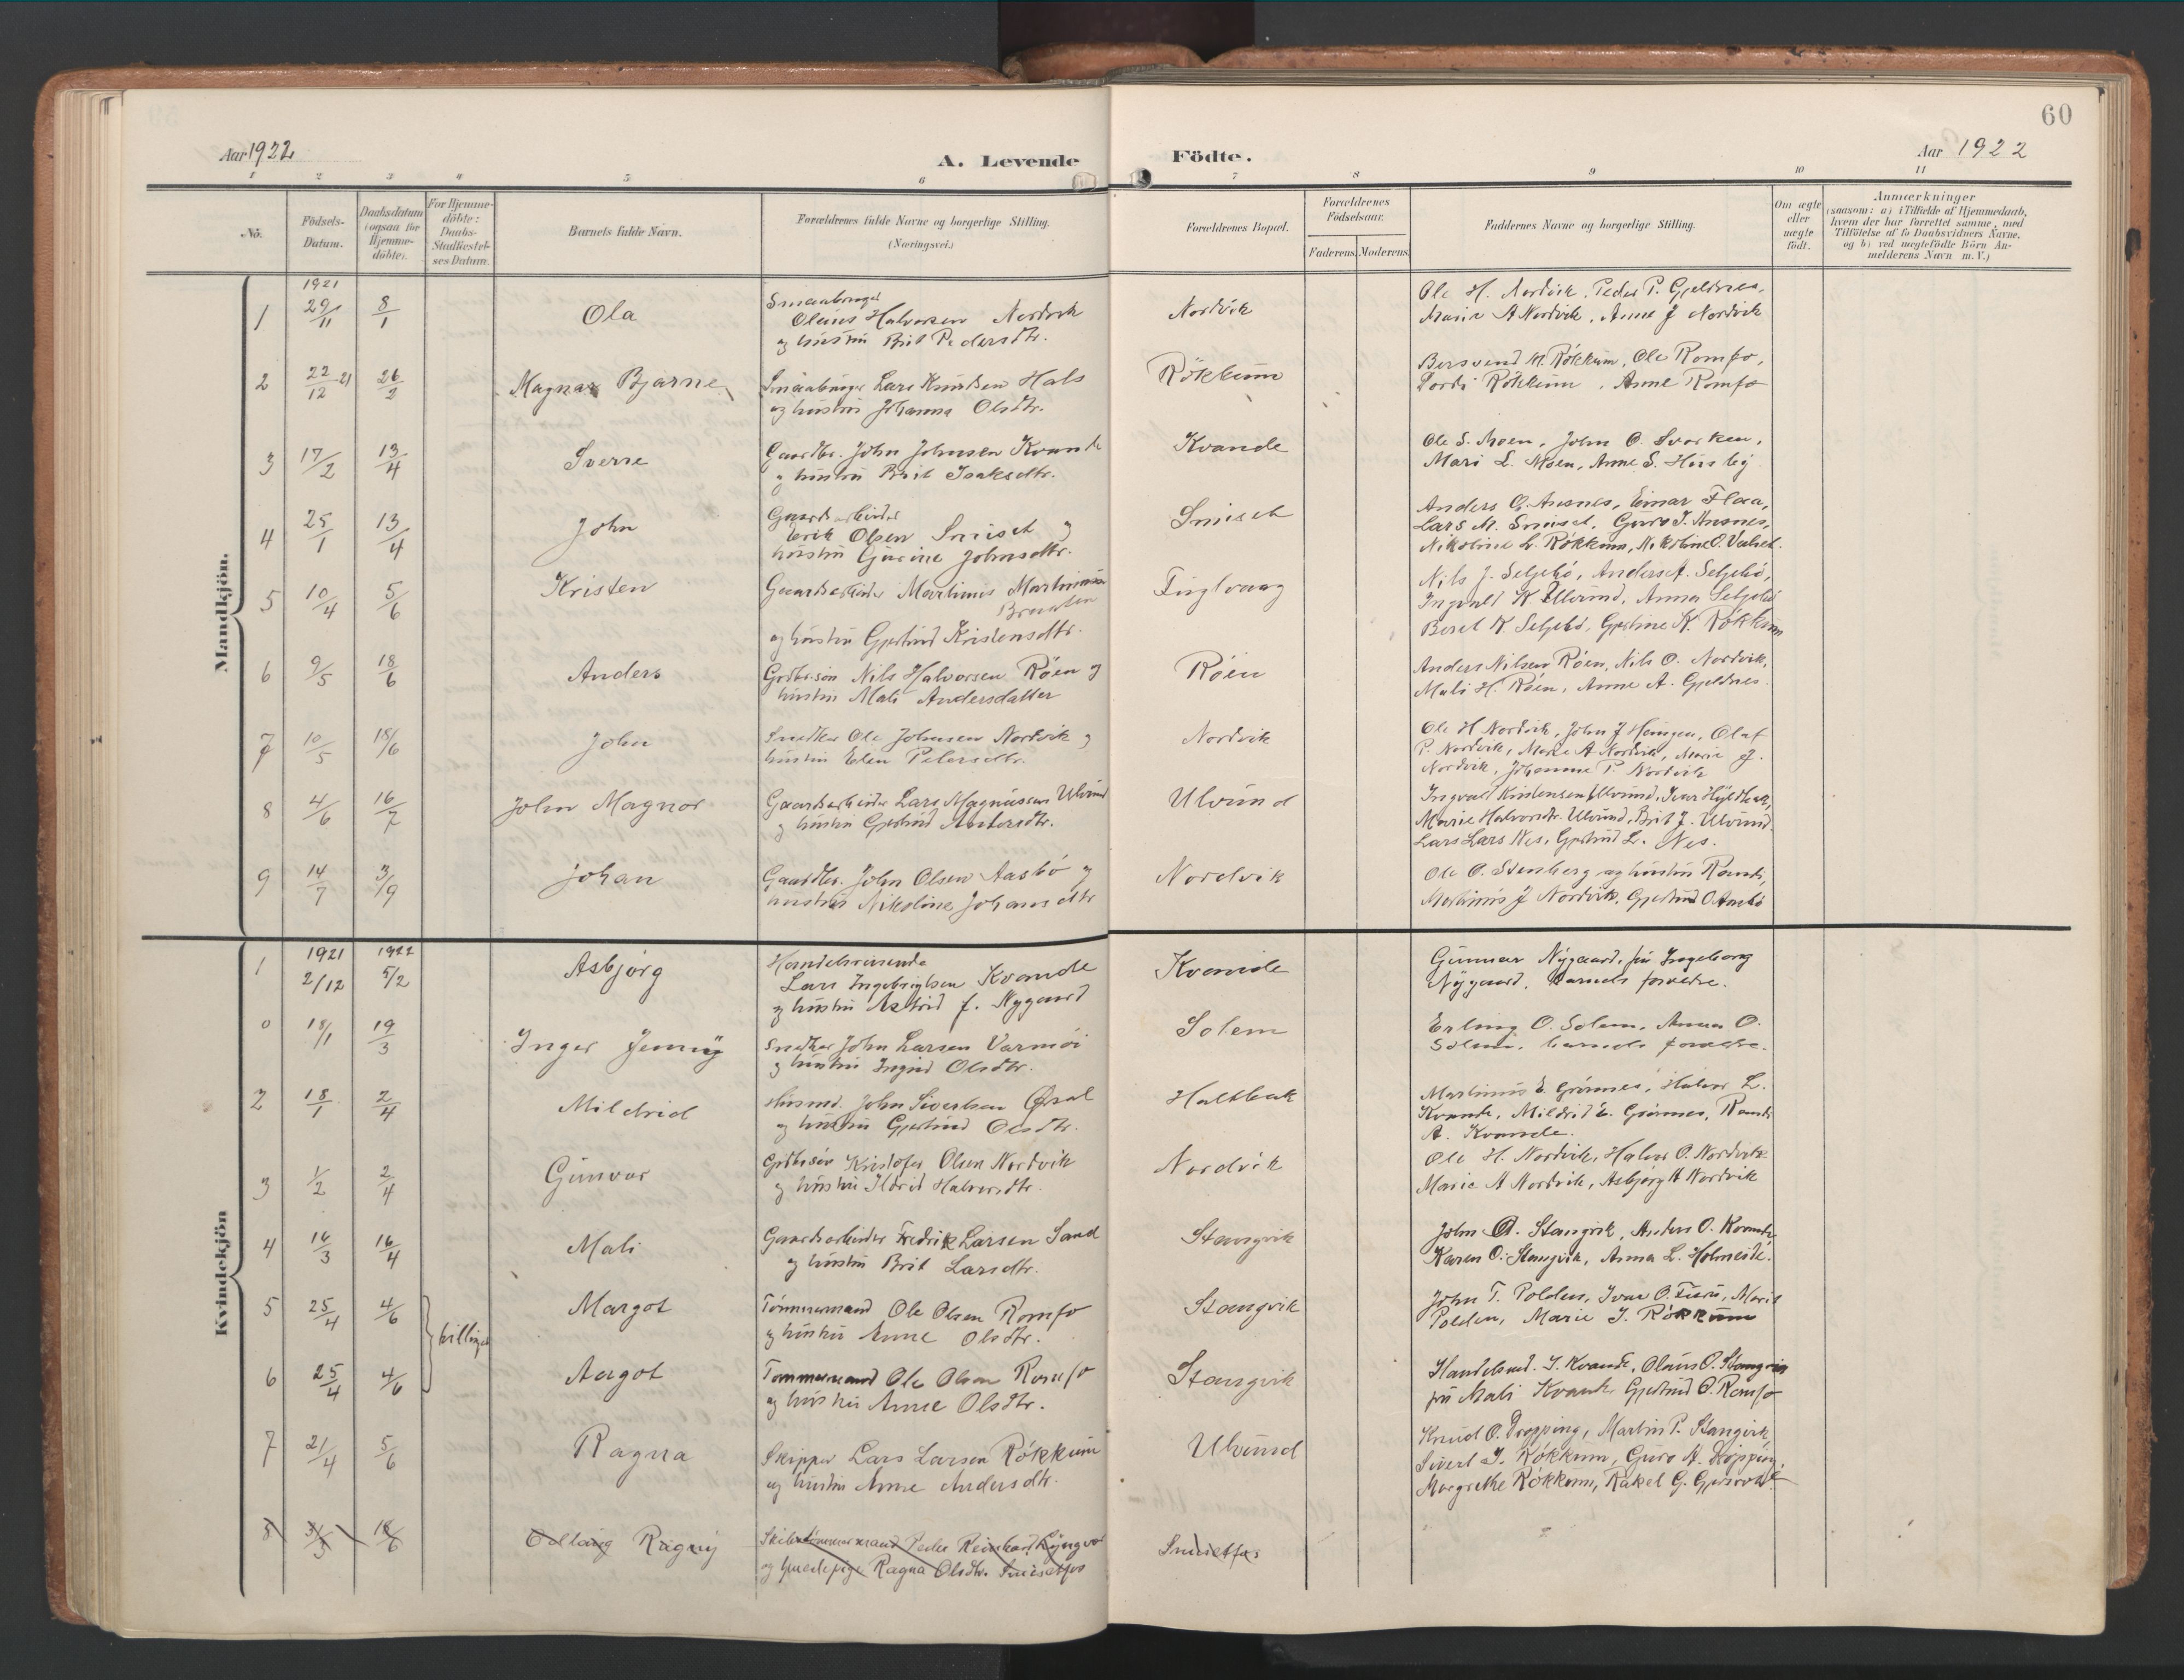 60
Aar 1922
A. Levende Födte.
Aar 1922
1 2 3 4 5 6 7 8 9 10 11
No.
Födsels-Datum.
Daabsdatum (ogsaa for Hjemme-döbte).
For Hjemme-döbte: Daabs-Stadfæstel-ses Datum.
Barnets fulde Navn.
Forældrenes fulde Navne og borgerlige Stilling. (Næringsvei.)
Forældrenes Bopæl.
Forældrenes Födselsaar.
Faderens. Moderens.
Faddernes Navne og borgerlige Stilling.
Om ægte eller uægte födt.
Anmærkninger
(saasom: a) i Tilfælde af Hjemmedaab,
hvem der har forrettet samme, med
Tilföielse af to Daabsvidners Navne,
og b) ved uægtefödte Börn An-
melderens Navn m. V.)
Mandkjön.
1921
1 29/11 8/1 Ola
Smaabruger
Olaus Halvorsen Nordvik
og hustru Brit Pedersdtr.
Nordvik
Ole H. Nordvik, Peder P. Gjeldnes,
Marie A Nordvik, Anne J Nordvik
2 22/12 21 26/2 Magnar Bjarne
Smaabruger Lars Knudsen Hals
og hustru Johanna Olsdtr.
Rökkum
Bersvend M. Rökkum, Ole Romfo,
Dordi Rökkum, Anne Romfo
3 17/2 13/4 Sverre
Gaardbr. John Johnsen Kvande
og hustru Brit Isaksdtr.
Kvande
Ole S. Moen, John O. Svorken,
Mari L. Moen, Anne S. Husby
4 25/1 13/4 John
Gaardsarbeider
Erik Olsen Smiset og
hustru Gurine Johnsdtr.
Smiset
Anders E. Ansnes, Einar Flaa,
Lars M. Smiset, Guro J. Ansnes,
Nikoline L. Rökkum, Nikoline O.
5 10/4 5/6 Kristen
Gaardsarbeider Martinus Martinusen
og hustru Gjertrud Kristensdtr.
Tinglvaag
Nils J. Seljebö, Anders A. Seljebö,
Ingvald K. Ulvund, Anna Seljebö
Beret K. Seljebö, Gjertine K. Rökkum
6 9/5 18/6 Anders
Grdbr.sön Nils Halvorsen Röen og
hustru Mali Andersdatter
Röen
Anders Nilsen Röen, Nils O. Nordvik,
Mali H. Röen, Anne A. Gjeldnes.
7 10/5 18/6 John
Snedker Ole Johnsen Nordvik og
hustru Elen Petersdtr.
Nordvik
Ole H Nordvik, John J Heingen, Olaf
P. Nordvik, Marie A Nordvik, Marie J.
Nordvik, Johanna P. Nordvik
8 4/6 16/7 John Magnor
Gaardsarbeider Lars Magnussen Ulvund
og hustru Gjertrud Andersdtr.
Ulvund
Ingvald Kristensen Ulvund, Ivar
Marie Halvorsdtr. Ulvund, Brit J. Ulvund.
Lars Lars Nes, Gjertrud L. Nes.
9 14/7 3/9 Johan
Gaardbr. John Olsen Aasbö og
hustru Nikoline Johansdtr
Nordvik
Ole O. Stenberg og hustru Randi,
Martinus J Nordvik, Gjertrud O Aasbö
Kvindekjön
1921 1922
1 2/12 5/2 Asbjörg
Handelsreisende
Lars Ingebrigtsen Kvande
og hustru Astrid f. Nygaard
Kvande
Gunnar Nygaard, fru Ingeborg
Nygaard, Barnets forældre.
0 18/1 19/3 Inger Jenny
Snedker John Larsen Varmöi
og hustru Ingrid Olsdtr.
Solem
Erling O. Solem, Anna O.
Solem, barnets forældre.
2 18/1 2/4 Mildrid
Husmd. John Sivertsen Öxal
og hustru Gjertrud Olsdtr.
Haltbak
Martinus E. Grönnes, Halvor L.
Kvande, Mildrid E. Grönnes, Randi
A. Kvande.
3 1/2 2/4 Gunvor
Grdbr.sön Kristofer Olsen Nordvik
og hustru Ildrid Halvorsdtr.
Nordvik
Ole H. Nordvik, Halvor O. Nordvik
Marie A Nordvik, Asbjörg H Nordvik
4 16/3 16/4 Mali
Gaardsarbeider Fredrik Larsen Sand
og hustru Brit Larsdtr.
Stangvik
John A. Stangvik, Anders O. Kvande
Karen O. Stangvik, Anna L. Holmeide.
5 25/4 4/6 tvillinger Margot
Tömmermand Ole Olsen Romfo
og hustru Anne Olsdtr.
Stangvik
John T. Polden, Ivar O. Furu, Marit
Polden, Marie J. Rökkum
6 25/4 4/6 Aagot
Tømmermand Ole Olsen Romfo
og hustru Anne Olsdtr.
Stangvik
Handelsmd. I. Kvande, Olaus O. Stangvik
fru Mali Kvande Gjertrud O. Romfo
7 21/4 5/6 Ragna
Skipper Lars Larsen Rökkum
og hustru Anne Andersdtr.
Ulvund
Knud O. Dropping, Martin P. Stangvik,
Sivert J. Rökkum, Guro A. Dropping,
Margrethe Rökkum, Rakel G.
8 3/5 18/6 Odlaug Ragny
Skibstömmermand Peder Reinhard Lyngvær
og huuspige Ragna Olsdtr. Smisetfos
Smisetfos